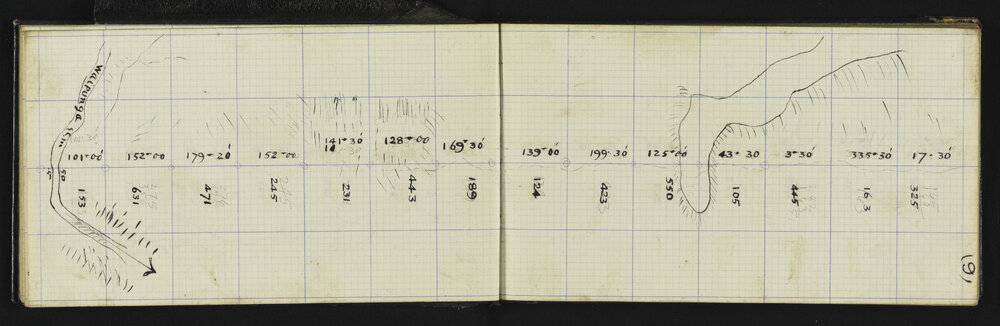 Waipunga Stm
101°00' 152°00 179°20' 152°00 141°30' 128°00 169°30' 139°00' 199°30' 125°00' 43°30 3°30 335°30' 17°30
50
153 631 471 245 231 443 189 124 423 550 105 445 163 325
(9)